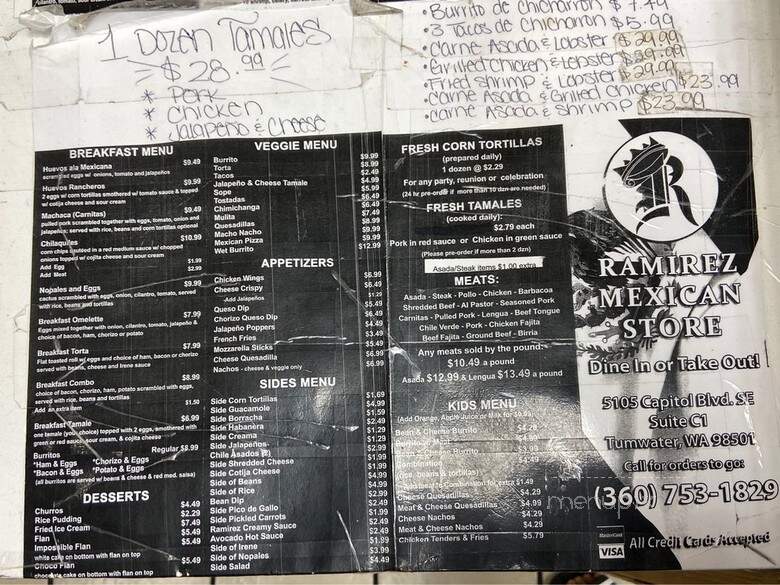 1 Dozen Tamales
$28.99
* Pork
* Chicken
* Jalapeño & Cheese
• Burrito de chicharron $7.49
• 3 Tacos de chicharron $5.99
• Carne Asada & Lobster $29.99
• Grilled Chicken & Lobster $29.99
• Fried Shrimp & Lobster $29.99
• Carne Asada & Grilled Chicken $23.99
• Carne Asada & Shrimp $23.99
BREAKFAST MENU
Huevos ala Mexicana $9.49
scrambled eggs w/ onions, tomato and jalapeños
Huevos Rancheros $9.99
2 eggs w/ corn tortillas smothered w/ tomato sauce & topped
w/ cotija cheese and sour cream
Machaca (Carnitas) $9.49
pulled pork scrambled together with eggs, tomato, onion and
jalapeño; served with rice, beans and corn tortillas optional
Chilaquiles $10.99
corn chips sauteed in a red medium sauce w/ chopped
onions topped w/ cojita cheese and sour cream
Add Egg $1.99
Add Meat $2.99
Nopales and Eggs $9.99
cactus scrambled with eggs, onion, cilantro, tomato, served
with rice, beans and tortillas
Breakfast Omelette $7.99
Eggs mixed together with onion, cilantro, tomato, jalapeño &
choice of bacon, ham, chorizo or potato
Breakfast Torta $7.99
Flat toasted roll w/ eggs and choice of ham, bacon or chorizo
served with beans, cheese and Irene sauce
Breakfast Combo $8.99
choice of bacon, chorizo, ham, potato scrambled with eggs,
served with rice, beans and tortillas
Add an extra item $1.50
Breakfast Tamale $6.99
one tamale (your choice) topped with 2 eggs, smothered with
green or red sauce, sour cream, & cojita cheese
Burritos Regular $8.99
*Ham & Eggs *Chorizo & Eggs
*Bacon & Eggs *Potato & Eggs
(all burritos are served w/ beans & cheese & red med. salsa)
DESSERTS
Churros $4.49
Rice Pudding $2.29
Fried Ice Cream $7.49
Flan $5.49
Impossible Flan $5.49
white cake on bottom with flan on top
Choco Flan $5.49
chocolate cake on bottom with flan on top
VEGGIE MENU
Burrito $9.99
Torta $8.99
Tacos $2.49
Jalapeño & Cheese Tamale $4.99
Sope $5.99
Tostadas $6.49
Chimichanga $6.49
Mulita $7.49
Quesadillas $8.99
Macho Nacho $9.99
Mexican Pizza $9.99
Wet Burrito $12.99
APPETIZERS
Chicken Wings $6.99
Cheese Crispy $6.49
-Add Jalapeños $1.29
Queso Dip $5.49
Chorizo Queso Dip $6.49
Jalapeño Poppers $4.49
French Fries $3.49
Mozzarella Sticks $5.49
Cheese Quesadilla $6.99
Nachos - cheese & veggie only $6.99
SIDES MENU
Side Corn Tortillas $1.69
Side Guacamole $4.99
Side Borracha $1.59
Side Habanera $2.49
Side Creama $1.29
Side Jalapeños $1.29
Chile Asados (2) $2.99
Side Shredded Cheese $1.99
Side Cheese $1.99
Side of Beans $4.99
Side of Rice $4.99
Bean Dip $2.99
Side Pico de Gallo $1.99
Side Pickled Carrots $2.49
Ramirez Creamy Sauce $2.49
Avocado Hot Sauce $1.99
Side of Irene $3.99
Side of Nopales $4.49
Side Salad
FRESH CORN TORTILLAS
(prepared daily)
1 dozen @ $2.29
For any party, reunion or celebration
(24 hr pre-order if more than 10 dzn are needed)
FRESH TAMALES
(cooked daily):
$2.79 each
Pork in red sauce or Chicken in green sauce
(Please pre-order if more than 2 dzn)
Asada/Steak items $1.00 extra
MEATS:
Asada - Steak - Pollo - Chicken - Barbacoa
Shredded Beef - Al Pastor - Seasoned Pork
Carnitas - Pulled Pork - Lengua - Beef Tongue
Chile Verde - Pork - Chicken Fajita
Beef Fajita - Ground Beef - Birria
Any meats sold by the pound:
$10.49 a pound
Asada $12.99 & Lengua $13.49 a pound
KIDS MENU
(Add Orange, Apple Juice or Milk for $0.99)
Bean & Cheese Burrito $4.29
Combination $4.49
(rice, beans & tortillas)
Cheese Quesadillas $4.29
Meat & Cheese Quesadillas $4.99
Cheese Nachos $4.29
Meat & Cheese Nachos $4.29
Chicken Tenders & Fries $5.79
R
RAMIREZ
MEXICAN
STORE
Dine In or Take Out!
5105 Capitol Blvd. SE
Suite C1
Tumwater, WA 98501
Call for orders to go:
(360) 753-1829
MasterCard
VISA
All Credit Cards Accepted